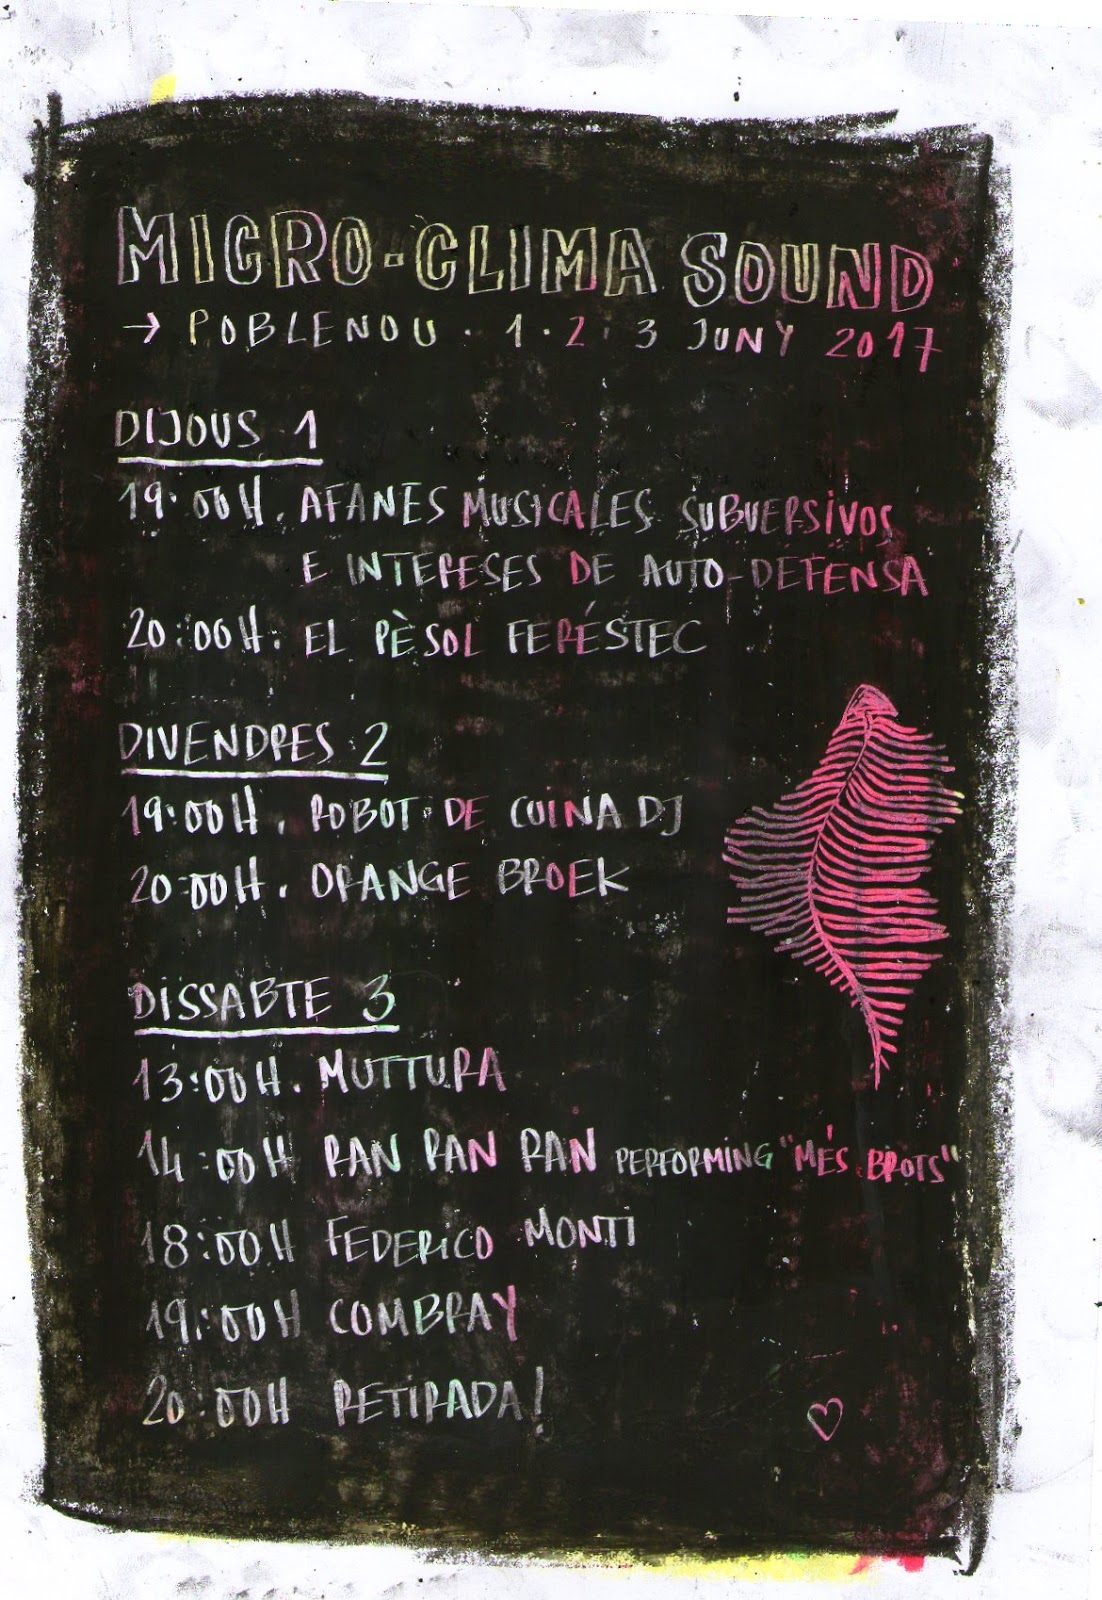 MICRO-CLIMA SOUND
→ POBLENOU · 1 · 2 · 3 JUNY 2017
DIJOUS 1
19:00H. AFANES MUSICALES SUBVERSIVOS
E INTERESES DE AUTO-DEFENSA
20:00H. EL PÈSOL FERÉSTEC
DIVENDRES 2
19:00H. ROBOT DE CUINA DJ
20:00H. ORANGE BROEK
DISSABTE 3
13:00H. MUTTURA
14:00H RAN RAN RAN PERFORMING "MÉS BROTS"
18:00H FEDERICO MONTI
19:00H COMBRAY
20:00H RETIRADA!